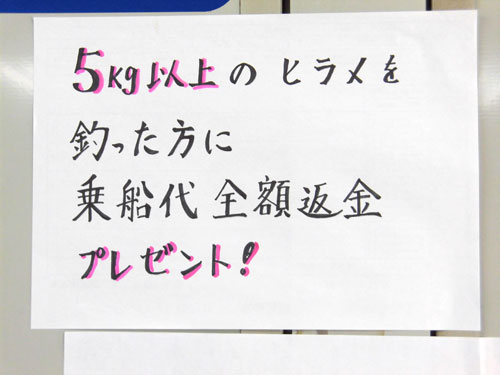 5kg以上のヒラメを
釣った方に
乗船代全額返金
プレゼント!